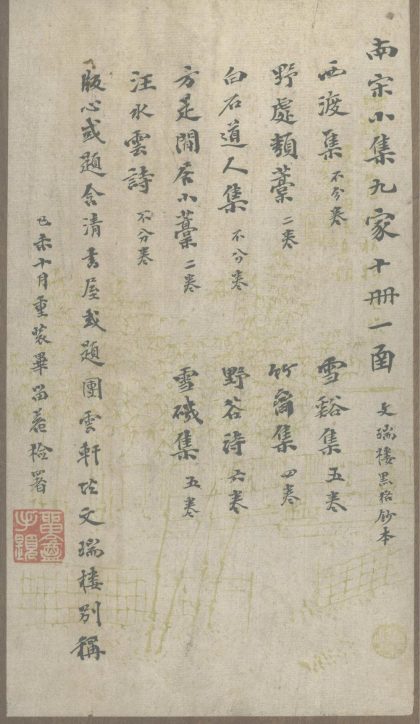 南宋小集九家十冊一函 文瑞樓黑格鈔本
西渡集 不分卷 雪谿集 五卷
野處類藁 二卷 竹齋集 四卷
白石道人集 不分卷 野谷詩 六卷
方是閒居小藁 二卷 雪磯集 五卷
汪水雲詩 不分卷
版心或題含清書屋或題團雲軒皆文瑞樓別稱
乙未十月重裝畢